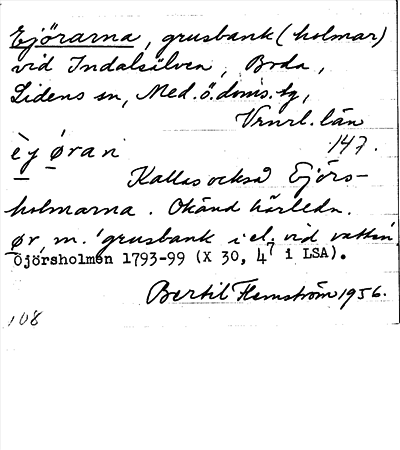 Ejörarna, grusbank (holmar)
vid Indalsälven, Boda,
Lidens sn, Med. ö. doms. tg,
Vrnrl. län
èy øran 147.
Kallas också Ejörs-
holmarna. Okänd härledn.
ør, m. 'grusbank i el. vid vatten'.
Öjörsholmen 1793-99 (X 30, 4⁷ i LSA).
Bertil Flemström 1956.
108